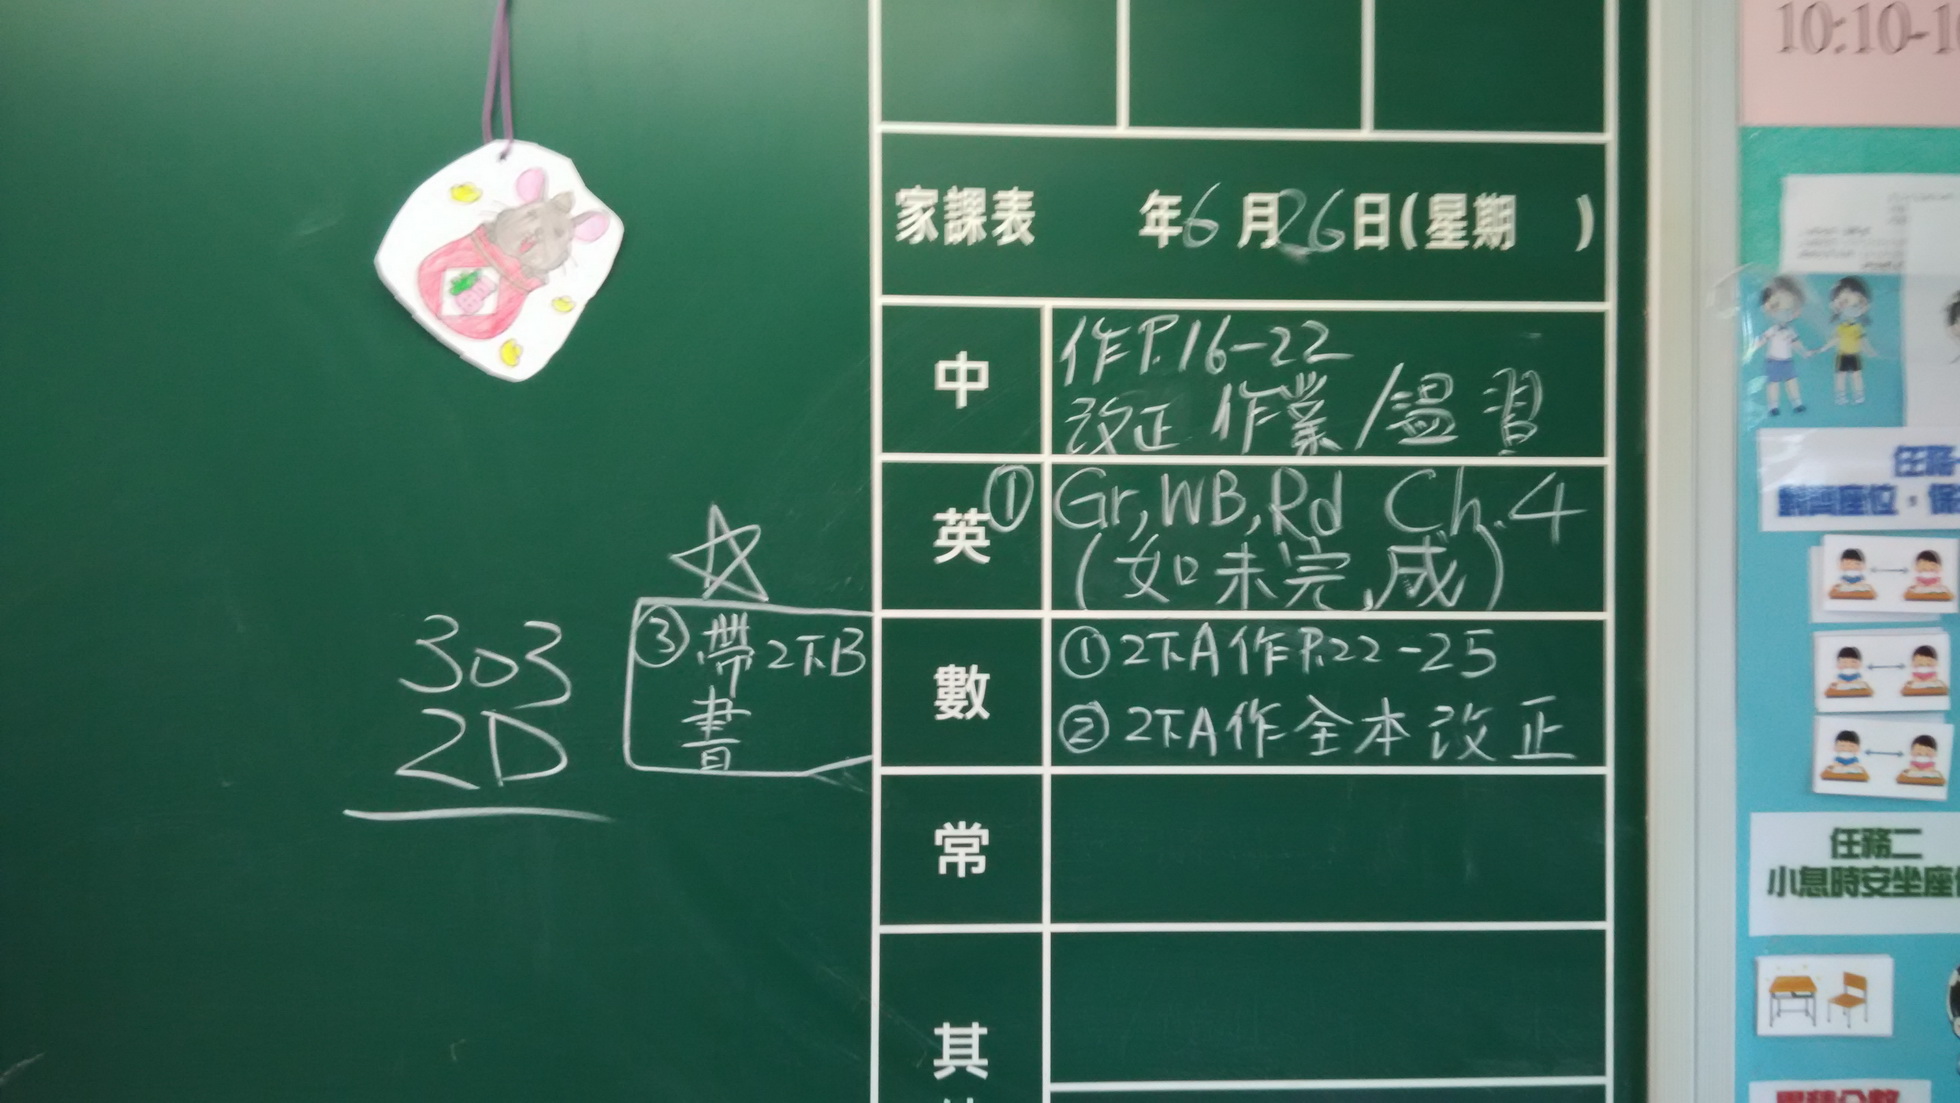 家課表 年6月26日(星期 )
中
作P.16-22
改正 作業/溫習
英
① Gr, WB, Rd Ch.4
(如未完成)
數
① 2下A作P.22-25
② 2下A作全本改正
☆
③ 帶2下B
書
303
2D
常
其
10:10-1
任務
任務二
小息時安坐座